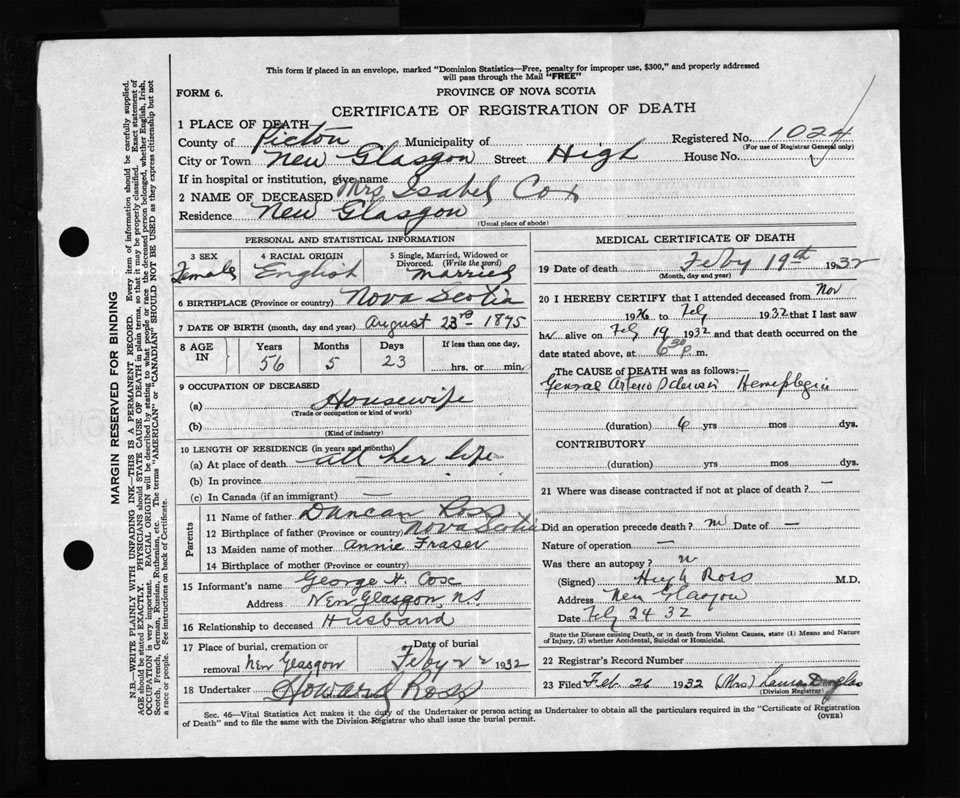 This form if placed in an envelope, marked "Dominion Statistics—Free, penalty for improper use, $300," and properly addressed
will pass through the Mail "FREE"
FORM 6.
PROVINCE OF NOVA SCOTIA
CERTIFICATE OF REGISTRATION OF DEATH
1 PLACE OF DEATH
County of Pictou Municipality of Registered No. 1024
(For use of Registrar General only)
City or Town New Glasgow Street High House No.
If in hospital or institution, give name
2 NAME OF DECEASED Mrs Isabel Cox
Residence New Glasgow
(Usual place of abode)
PERSONAL AND STATISTICAL INFORMATION
3 SEX 4 RACIAL ORIGIN 5 Single, Married, Widowed or
Divorced. (Write the word)
Female English married
6 BIRTHPLACE (Province or country) Nova Scotia
7 DATE OF BIRTH (month, day and year) August 23rd - 1875
8 AGE IN Years Months Days If less than one day,
56 5 23 hrs. or min.
9 OCCUPATION OF DECEASED
(a) Housewife
(Trade or occupation or kind of work)
(b)
(Kind of industry)
10 LENGTH OF RESIDENCE (in years and months)
(a) At place of death all her life
(b) In province
(c) In Canada (if an immigrant) —
Parents
11 Name of father Duncan Ross
12 Birthplace of father (Province or country) Nova Scotia
13 Maiden name of mother Annie Fraser
14 Birthplace of mother (Province or Country)
15 Informant's name George H. Cox
Address New Glasgow, N.S.
16 Relationship to deceased Husband
17 Place of burial, cremation or Date of burial
removal New Glasgow Feby 22 1932
18 Undertaker Howard Ross
MEDICAL CERTIFICATE OF DEATH
19 Date of death Feby 19th 1932
(Month, day and year)
20 I HEREBY CERTIFY that I attended deceased from Nov
1926 to Feb 1932 that I last saw
her alive on Feb 19 1932 and that death occurred on the
date stated above, at 6 30 p. m.
The CAUSE of DEATH was as follows:—
General Arterio Sclerosis Hemiplegia
(duration) 6 yrs mos dys.
CONTRIBUTORY
(duration) yrs mos dys.
21 Where was disease contracted if not at place of death? —
Did an operation precede death? no Date of —
Nature of operation —
Was there an autopsy? n
(Signed) Hugh Ross M.D.
Address New Glasgow
Date Feb 24 32
State the Disease causing Death, or in death from Violent Causes, state (1) Means and Nature
of Injury, (2) whether Accidental, Suicidal or Homicidal.
22 Registrar's Record Number
23 Filed Feb. 26 1932 (Mrs) Douglas
(Division Registrar)
Sec. 46—Vital Statistics Act makes it the duty of the Undertaker or person acting as Undertaker to obtain all the particulars required in the "Certificate of Registration
of Death" and to file the same with the Division Registrar who shall issue the burial permit.
(OVER)
MARGIN RESERVED FOR BINDING
N.B.—WRITE PLAINLY WITH UNFADING INK—THIS IS A PERMANENT RECORD. Every item of information should be carefully supplied.
AGE should be stated EXACTLY. PHYSICIANS should STATE CAUSE OF DEATH in plain terms, so that it may be properly classified. Exact statement of
OCCUPATION is very important. RACIAL ORIGIN will be described by stating to what people or race the deceased person belonged, whether English, Irish,
Scotch, French, German, Russian, Ruthenian, etc. The terms "AMERICAN" or "CANADIAN" SHOULD NOT BE USED as they express citizenship but not
a race or people. See instructions on back of Certificate.